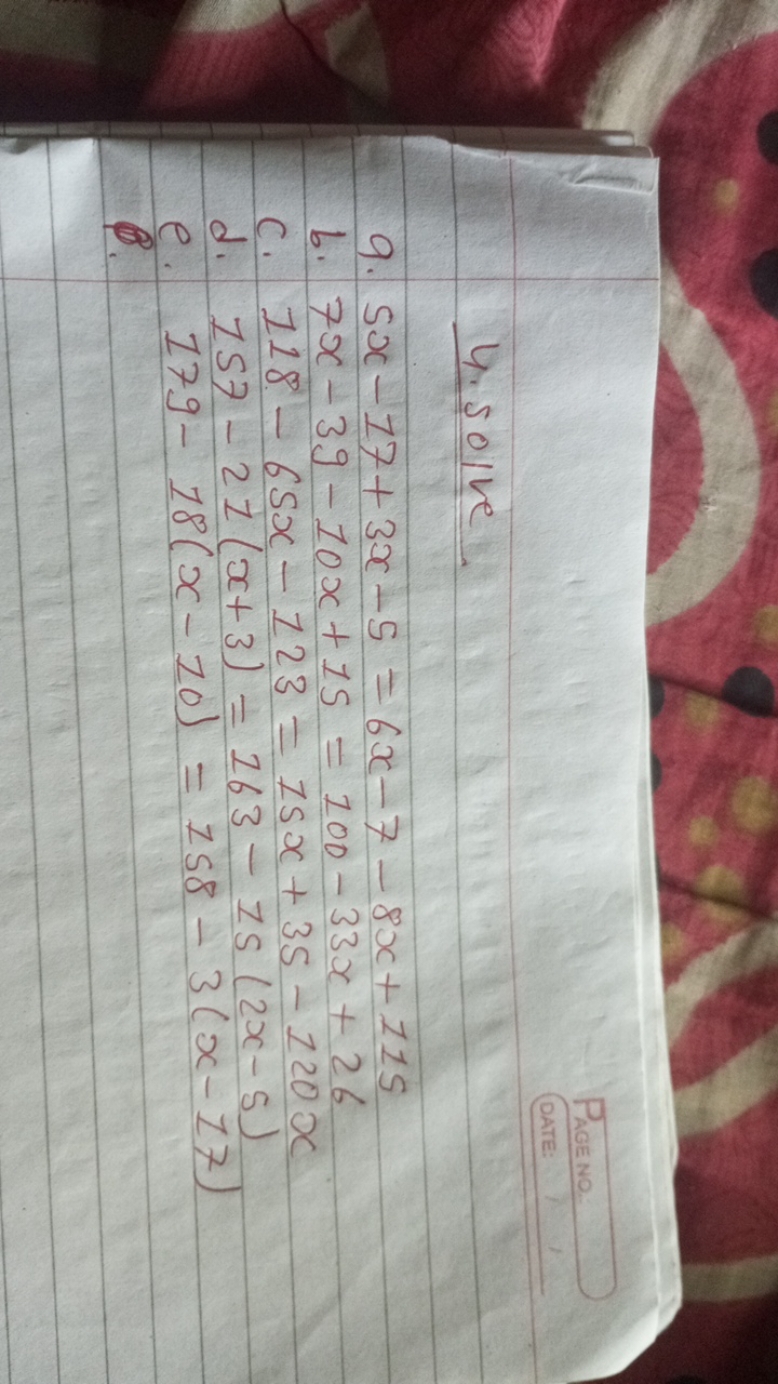 PAGE NO.
DATE: / /
4. Solve
a. 5x - 17 + 3x - 5 = 6x - 7 - 8x + 115
b. 7x - 39 - 10x + 15 = 100 - 33x + 26
c. 118 - 65x - 123 = 15x + 35 - 120x
d. 157 - 21(x+3) = 163 - 15(2x-5)
e. 179 - 18(x-10) = 158 - 3(x-17)